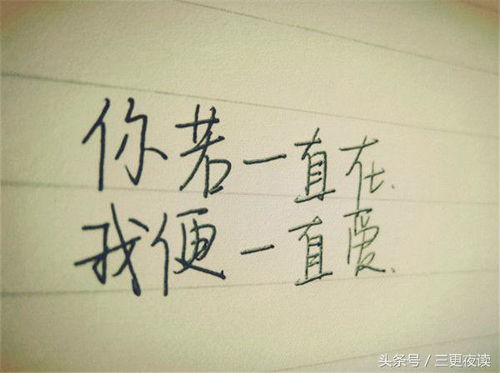 你若一直在.
我便一直爱.
头条号 / 三更夜读